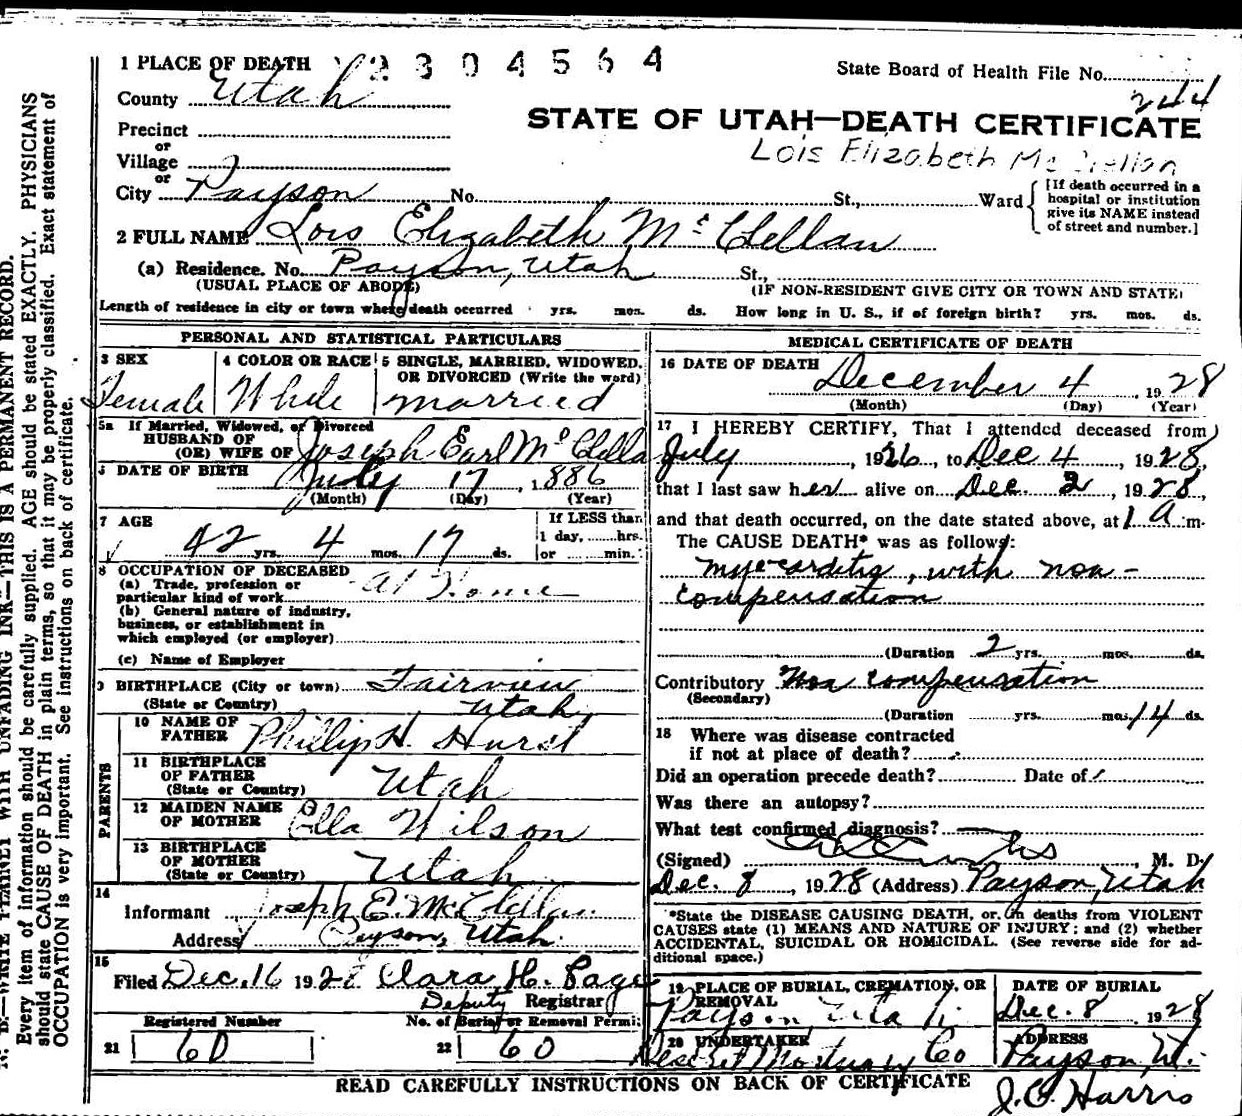 1 PLACE OF DEATH 2304564
State Board of Health File No.
County Utah
244
STATE OF UTAH—DEATH CERTIFICATE
Precinct
Lois Elizabeth McClellan
or
Village
or
City Payson No. St., Ward [If death occurred in a hospital or institution give its NAME instead of street and number.]
2 FULL NAME Lois Elizabeth McClellan
(a) Residence. No. Payson, Utah St.,
(USUAL PLACE OF ABODE) (IF NON-RESIDENT GIVE CITY OR TOWN AND STATE)
Length of residence in city or town where death occurred yrs. mos. ds. How long in U. S., if of foreign birth? yrs. mos. ds.
PERSONAL AND STATISTICAL PARTICULARS
3 SEX 4 COLOR OR RACE 5 SINGLE, MARRIED, WIDOWED, OR DIVORCED (Write the word)
Female White married
5a If Married, Widowed, or Divorced
HUSBAND OF
(OR) WIFE OF Joseph Earl McClella
6 DATE OF BIRTH July 17, 1886
(Month) (Day) (Year)
7 AGE If LESS than
1 day, hrs.
42 yrs. 4 mos. 17 ds. or min.
8 OCCUPATION OF DECEASED
(a) Trade, profession or
particular kind of work at Home
(b) General nature of industry,
business, or establishment in
which employed (or employer)
(c) Name of Employer
9 BIRTHPLACE (City or town) Fairview
(State or Country) Utah
PARENTS
10 NAME OF
FATHER Phillip H. Hurst
11 BIRTHPLACE
OF FATHER
(State or Country) Utah
12 MAIDEN NAME
OF MOTHER Ella Wilson
13 BIRTHPLACE
OF MOTHER
(State or Country) Utah
14
Informant Joseph E. McClellan
Address Payson, Utah.
15
Filed Dec. 16 1928 Clara H. Page
Deputy Registrar
Registered Number No. of Burial or Removal Permit
21 60 22 60
MEDICAL CERTIFICATE OF DEATH
16 DATE OF DEATH
December 4, 1928
(Month) (Day) (Year)
17 I HEREBY CERTIFY, That I attended deceased from
July, 1926, to Dec 4, 1928,
that I last saw her alive on Dec. 2, 1928,
and that death occurred, on the date stated above, at 1 a m.
The CAUSE DEATH* was as follows:
myocarditis, with non-
compensation
(Duration 2 yrs. mos. ds.
Contributory Non compensation
(Secondary)
(Duration yrs. mos. 14 ds.
18 Where was disease contracted
if not at place of death?
Did an operation precede death? Date of
Was there an autopsy?
What test confirmed diagnosis?
(Signed) , M. D.
Dec. 8, 1928 (Address) Payson, Utah
*State the DISEASE CAUSING DEATH, or, in deaths from VIOLENT
CAUSES state (1) MEANS AND NATURE OF INJURY; and (2) whether
ACCIDENTAL, SUICIDAL OR HOMICIDAL. (See reverse side for ad-
ditional space.)
19 PLACE OF BURIAL, CREMATION, OR REMOVAL DATE OF BURIAL
Payson Utah Dec. 8 1928
20 UNDERTAKER ADDRESS
Deseret Mortuary Co Payson, Ut.
READ CAREFULLY INSTRUCTIONS ON BACK OF CERTIFICATE
J. O. Harris
N. B.—WRITE PLAINLY WITH UNFADING INK—THIS IS A PERMANENT RECORD.
Every item of information should be carefully supplied. AGE should be stated EXACTLY. PHYSICIANS
should state CAUSE OF DEATH in plain terms, so that it may be properly classified. Exact statement of
OCCUPATION is very important. See instructions on back of certificate.